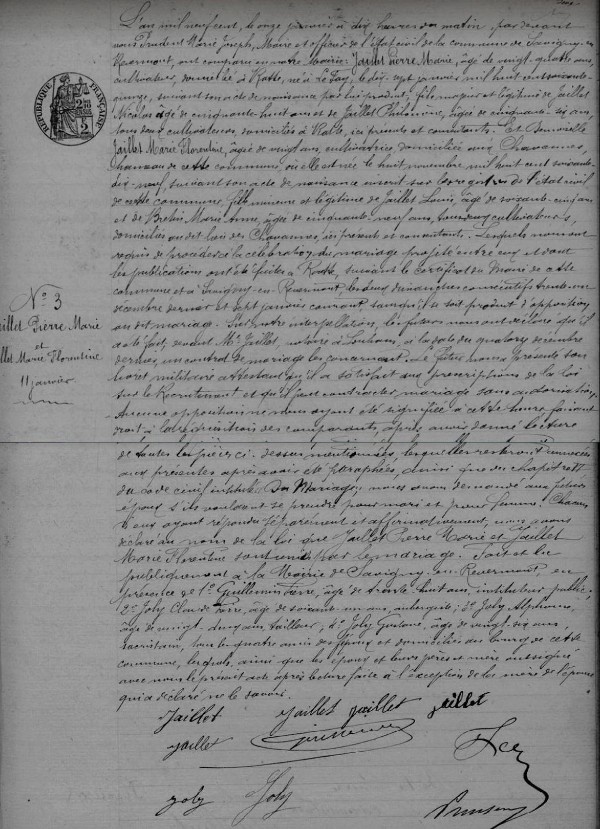 L'an mil neuf cent, le onze janvier à dix heures du matin, par devant
nous Prudent Marie Joseph, Maire et officier de l'état civil de la commune de Savigny-en-
Revermont, ont comparu en notre mairie: Jaillet Pierre Marie, âgé de vingt-quatre ans,
cultivateur, domicilié à Ratte, né à le dix-sept janvier mil huit cent soixante-
quinze, suivant son acte de naissance par lui produit, fils majeur et légitime de Jaillet
Nicolas âgé de cinquante-huit ans et de Jaillet Philomène, âgée de cinquante-six ans,
tous deux cultivateurs, domiciliés à Ratte, ici présents et consentants. Et Demoiselle
Jaillet Marie Florentine, âgée de vingt ans, cultivatrice, domiciliée aux Chavannes,
hameau de cette commune, où elle est née le huit novembre mil huit cent soixante-
dix-neuf, suivant son acte de naissance inscrit sur les registres de l'état civil
de cette commune, fille mineure et légitime de Jaillet Louis, âgé de soixante-cinq ans
et de Marie Anne, âgée de cinquante-neuf ans, tous deux cultivateurs,
domiciliés au dit lieu des Chavannes, ici présents et consentants. Lesquels nous ont
requis de procéder à la célébration du mariage projeté entre eux et dont
les publications ont été faites à Ratte, suivant le certificat du Maire de cette
commune et à Savigny-en-Revermont, les deux dimanches consécutifs trente-un
décembre dernier et sept janvier courant, sans qu'il se soit produit d'opposition
au dit mariage. Sur notre interpellation, les futurs nous ont déclaré qu'il
a été fait, devant Me Jaillet, notaire à Louhans, à la date du quatorze décembre
dernier, un contrat de mariage les concernant. Le futur nous a présenté son
livret militaire attestant qu'il a satisfait aux prescriptions de la loi
sur le Recrutement et qu'il peut contracter mariage sans autorisation.
Aucune opposition ne nous ayant été signifiée à cette heure, faisant
droit à la réquisition des comparants, après avoir donné lecture
de toutes les pièces ci-dessus mentionnées, lesquelles resteront annexées
aux présentes après avoir été paraphées, ainsi que du chapitre VI
du code civil intitulé Du Mariage, nous avons demandé aux futurs
époux s'ils voulaient se prendre pour mari et pour femme. Chacun
d'eux ayant répondu séparément et affirmativement, nous avons
déclaré au nom de la loi que Jaillet Pierre Marie et Jaillet
Marie Florentine sont unis par le mariage. Fait et lu
publiquement à la Mairie de Savigny-en-Revermont, en
présence de 1° Guillemin Pierre, âgé de trente-huit ans, instituteur public;
2° Joly Claude, âgé de soixante-un ans, aubergiste; 3° Joly Alphonse,
âgé de vingt-cinq ans, tailleur; 4° Joly Gustave, âgé de vingt-six ans,
sacristain, tous les quatre amis des époux et domiciliés au bourg de cette
commune, lesquels, ainsi que les époux et leurs pères et mère ont signé
avec nous le présent acte après lecture faite à l'exception de la mère de l'épouse
qui a déclaré ne le savoir.
N° 3
Jaillet Pierre Marie
et
Jaillet Marie Florentine
11 janvier
RÉPUBLIQUE FRANÇAISE
Jaillet Jaillet Jaillet Jaillet
Jaillet
Joly Joly